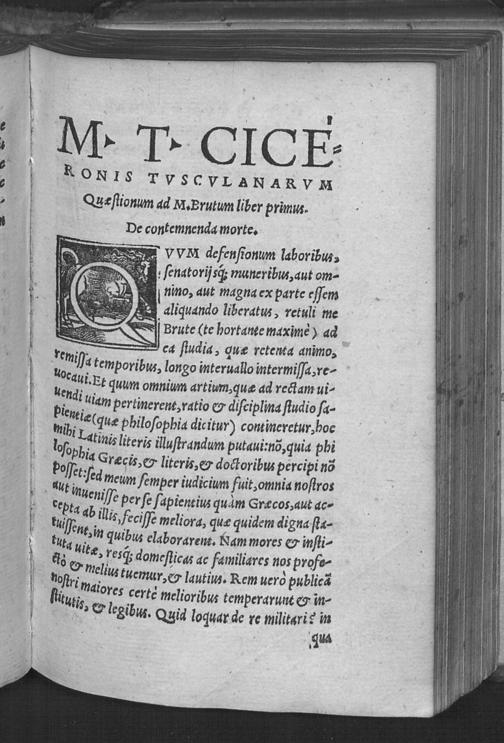 M. T. CICE=
RONIS TVSCVLANARVM
Quæstionum ad M.Brutum liber primus.
De contemnenda morte.
QVVM defensionum laboribus,
senatorijsq; muneribus, aut om-
nino, aut magna ex parte essem
aliquando liberatus, retuli me
Brute (te hortante maximè) ad
ea studia, quæ retenta animo,
remissa temporibus, longo interuallo intermissa, re-
uocaui. Et quum omnium artium, quæ ad rectam ui-
uendi uiam pertinerent, ratio & disciplina studio sa-
pientiæ (quæ philosophia dicitur) contineretur, hoc
mihi Latinis literis illustrandum putaui: nō, quia phi
losophia Græcis, & literis, & doctoribus percipi nō
posset: sed meum semper iudicium fuit, omnia nostros
aut inuenisse per se sapientius quàm Græcos, aut ac-
cepta ab illis, fecisse meliora, quæ quidem digna sta-
tuissent, in quibus elaborarent. Nam mores & insti-
tuta uitæ, resq; domesticas ac familiares nos profe-
ctò & melius tuemur, & lautius. Rem uerò publicā
nostri maiores certè melioribus temperarunt & in-
stitutis, & legibus. Quid loquar de re militari? in
qua